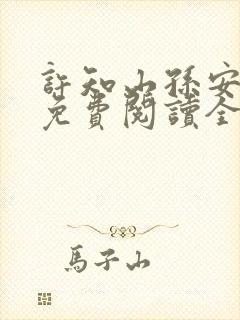 許知山孫安
免費閱讀全
馬子山